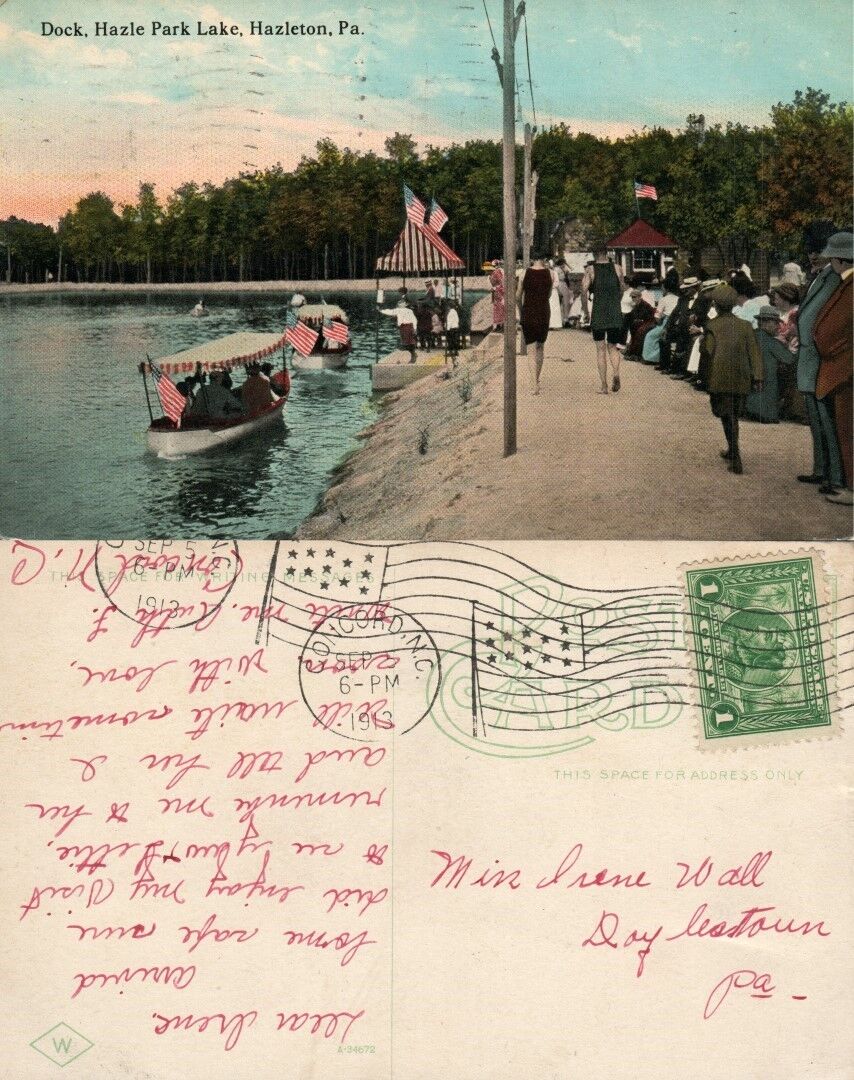 Dock, Hazle Park Lake, Hazleton, Pa.
THIS SPACE FOR WRITING MESSAGES
POST CARD
THIS SPACE FOR ADDRESS ONLY
SEP 5
6-PM
1913
CONCORD, N.C.
SEP
6-PM
1913
1
1
Dear Irene,
arrived
home safe sure
did enjoy my visit
to see you +
remember me to her
and tell her I
will write sometime
with love,
Ruth F.
Concord N.C
Miss Irene Wall
Doylestown
Pa -
W
A-34672